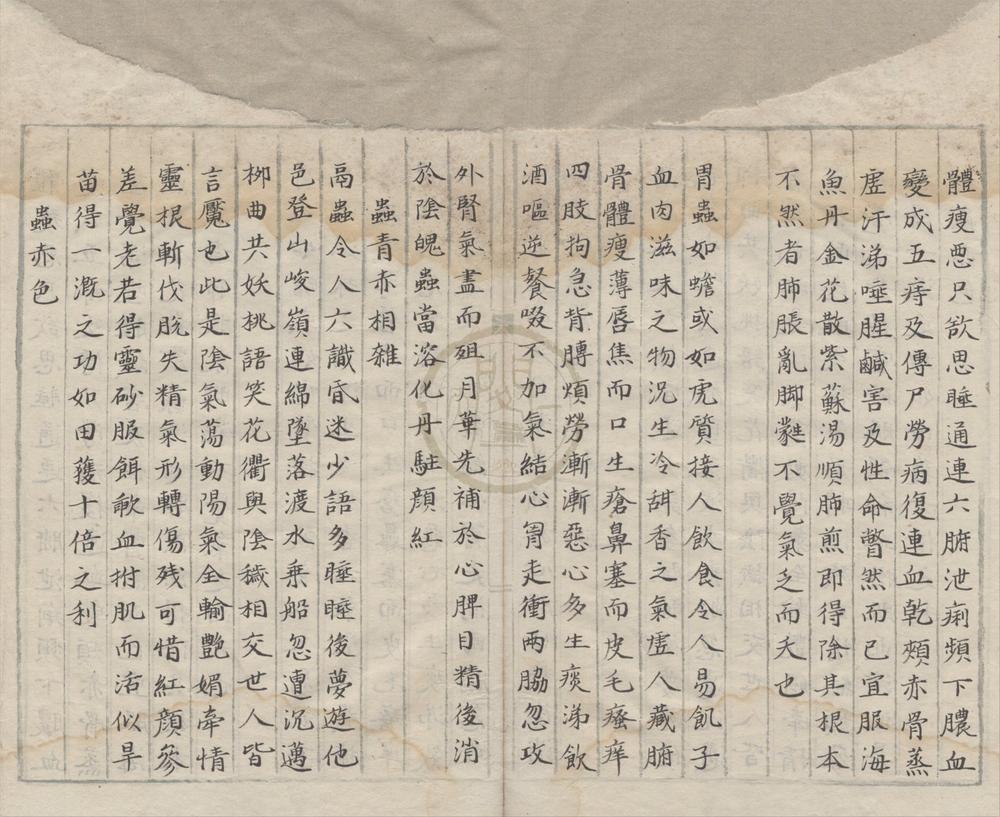 體瘦惡只欲思睡通連六腑泄痢頻下膿血
變成五痔及傳尸勞病復連血乾頰赤骨蒸
虛汗涕唾腥鹹害及性命瞥然而已宜服海
魚丹金花散紫蘇湯順肺煎即得除其根本
不然者肺脹亂脚蹩不覺氣乏而夭也
胃蟲如蟾或如虎質接人飲食令人易飢子
血肉滋味之物況生冷甜香之氣虛人藏腑
骨體瘦薄唇焦而口生瘡鼻塞而皮毛瘙痒
四肢拘急背膊煩勞漸漸惡心多生痰涕飲
酒嘔逆餐啜不加氣結心胃走衝兩脇忽攻
外腎氣盡而殂月華先補於心脾日精後消
於陰魄蟲當溶化丹駐顏紅
蟲青赤相雜
鬲蟲令人六識昏迷少語多睡睡後夢遊他
邑登山峻嶺連綿墜落渡水乗船忽遭沉邁
柳曲共妖桃語笑花衢與陰穢相交世人皆
言魘也此是陰氣蕩動陽氣全輸艷媚牽情
靈根斬伐脫失精氣形轉傷残可惜紅顏參
差覺老若得靈砂服餌歃血拊肌而活似旱
苗得一溉之功如田蓑十倍之利
蟲赤色